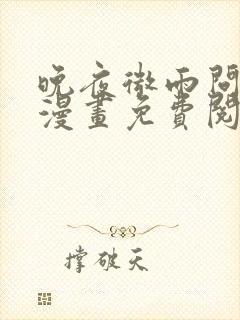 晚夜微雨問
漫畫免費閱
撐破天